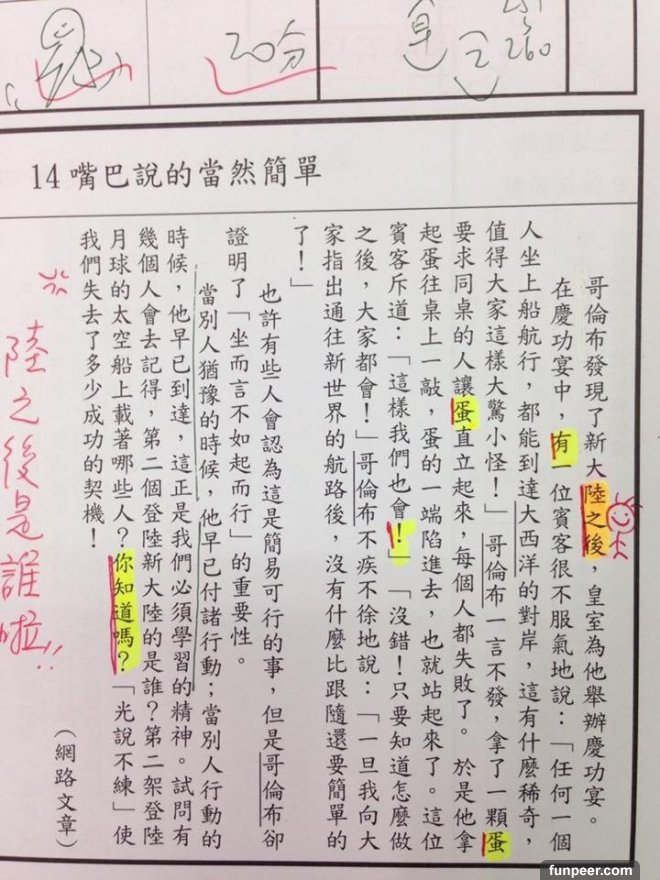 20分
早
260
14 嘴巴說的當然簡單
哥倫布發現了新大陸之後，皇室為他舉辦慶功宴。
在慶功宴中，有一位賓客很不服氣地說：「任何一個
人坐上船航行，都能到達大西洋的對岸，這有什麼稀奇，
值得大家這樣大驚小怪！」哥倫布一言不發，拿了一顆蛋
要求同桌的人讓蛋直立起來，每個人都失敗了。於是他拿
起蛋往桌上一敲，蛋的一端陷進去，也就站起來了。這位
賓客斥道：「這樣我們也會！」「沒錯！只要知道怎麼做
之後，大家都會！」哥倫布不疾不徐地說：「一旦我向大
家指出通往新世界的航路後，沒有什麼比跟隨還要簡單的
了！」
也許有些人會認為這是簡易可行的事，但是哥倫布卻
證明了「坐而言不如起而行」的重要性。
當別人猶豫的時候，他早已付諸行動；當別人行動的
時候，他早已到達，這正是我們必須學習的精神。試問有
幾個人會去記得，第二個登陸新大陸的是誰？第二架登陸
月球的太空船上載著哪些人？你知道嗎？「光說不練」使
我們失去了多少成功的契機！
（網路文章）
陸之後是誰啦!!
funpeer.com